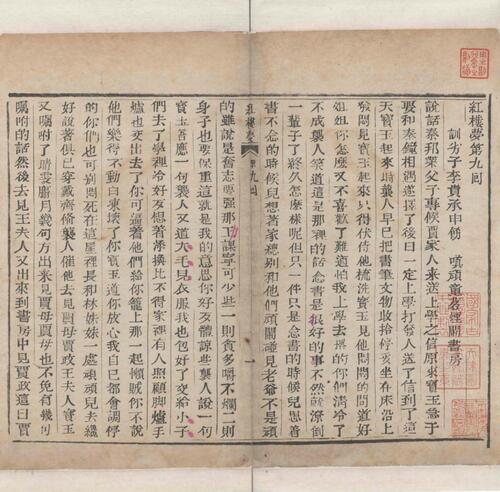 紅樓夢第九回
訓劣子李貴承申飭　嗔頑童茗煙鬧書房
說話秦邦業父子專候賈家人來送上學之信原來寶玉急于
要和秦鐘相遇遂擇了後日一定上學打發人送了信到了這
天寶玉起來時襲人早已把書筆文物收拾停妥坐在床沿上
發悶見寶玉起來只得伏侍他梳洗寶玉見他悶悶的問道好
姐姐你怎麼又不喜歡了難道怕我上學去撂的你們清冷了
不成襲人笑道這是那裡的話念書是狠好的事不然就潦倒
一輩子了終久怎麼樣呢但只一件只是念書的時候兒想着
書不念的時候兒想著家總別和他們頑鬧碰見老爺不是頑
紅樓夢　第九回　一
的雖說是奮志要强那工課寧可少些一則貪多嚼不爛二則
身子也要保重這就是我的意思你好歹體諒些襲人說一句
寶玉答應一句襲人又道大毛兒衣服我也包好了交給小子
們去了學裡冷好歹想着添換比不得家裡有人照顧脚爐手
爐也交出去了你可逼著他們給你籠上那一起懶賊你不說
他們樂得不動白凍壞了你寶玉道你放心我自已都會調停
的你們也可別悶死在這屋裡長和林妹妹一處頑頑兒去纔
好說著俱已穿戴齊備襲人催他去見賈母賈政王夫人寶玉
又囑咐了晴雯麝月幾句方出來見賈母賈母也不免有幾句
囑咐的話然後去見王夫人又出來到書房中見賈政這日賈